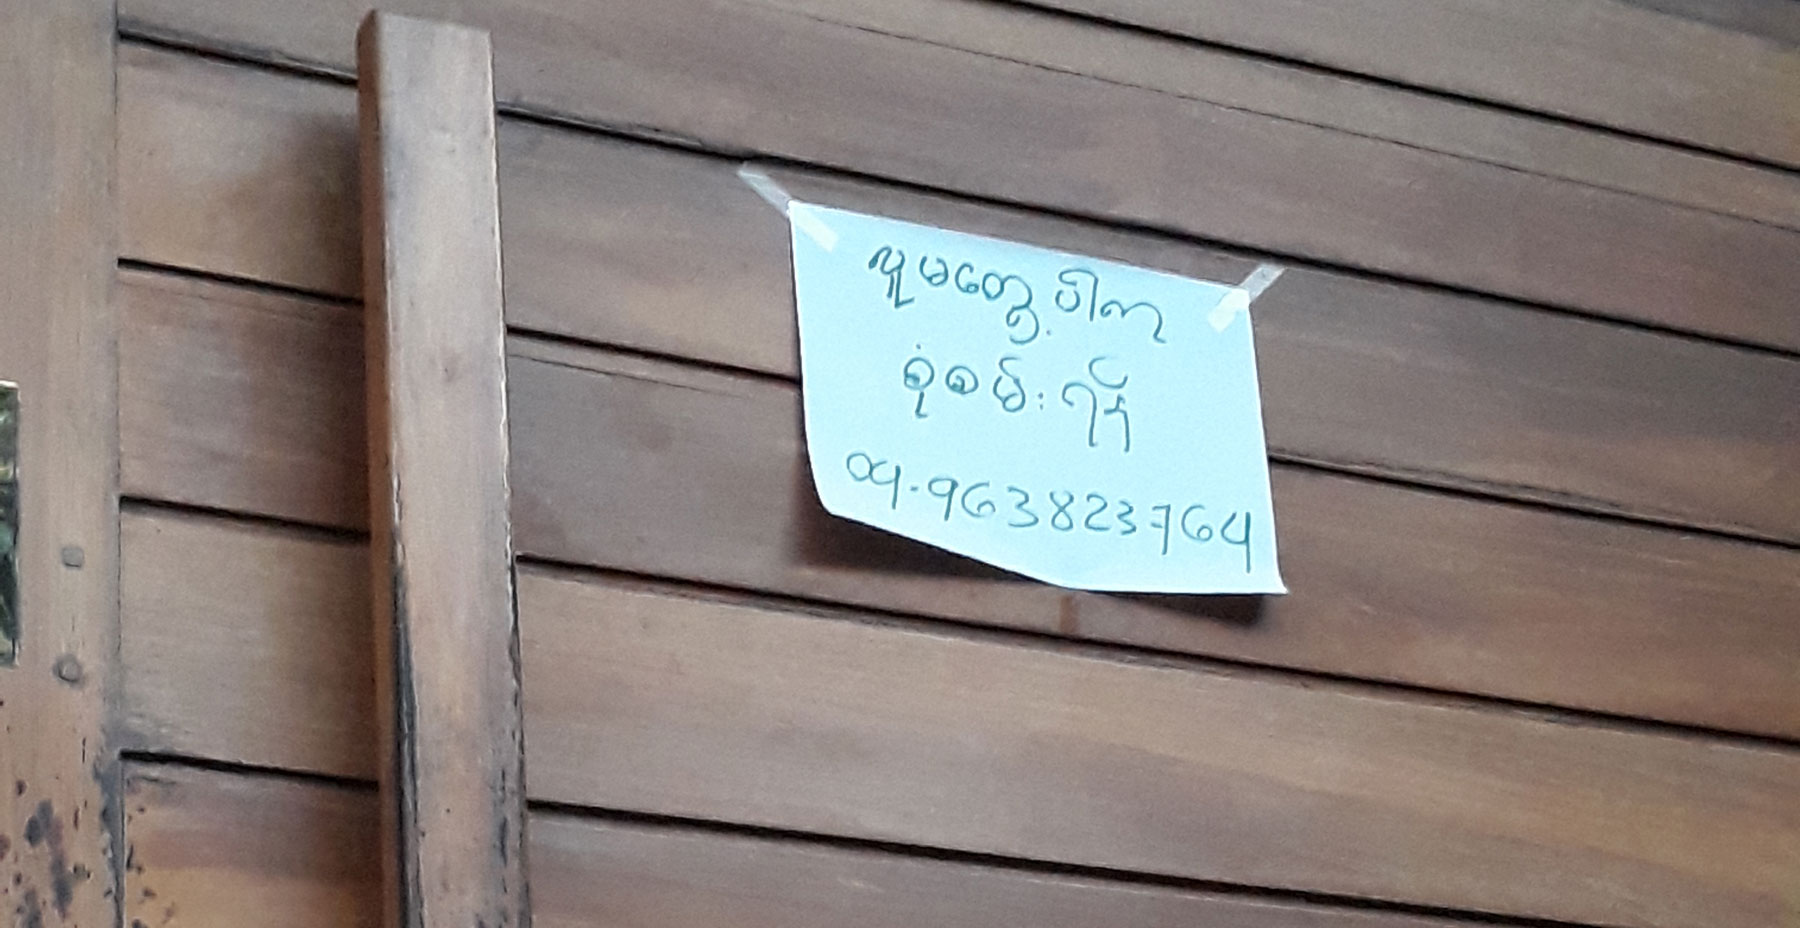 လူမတွေ့ပါက
စုံစမ်းရန်
09.963823764